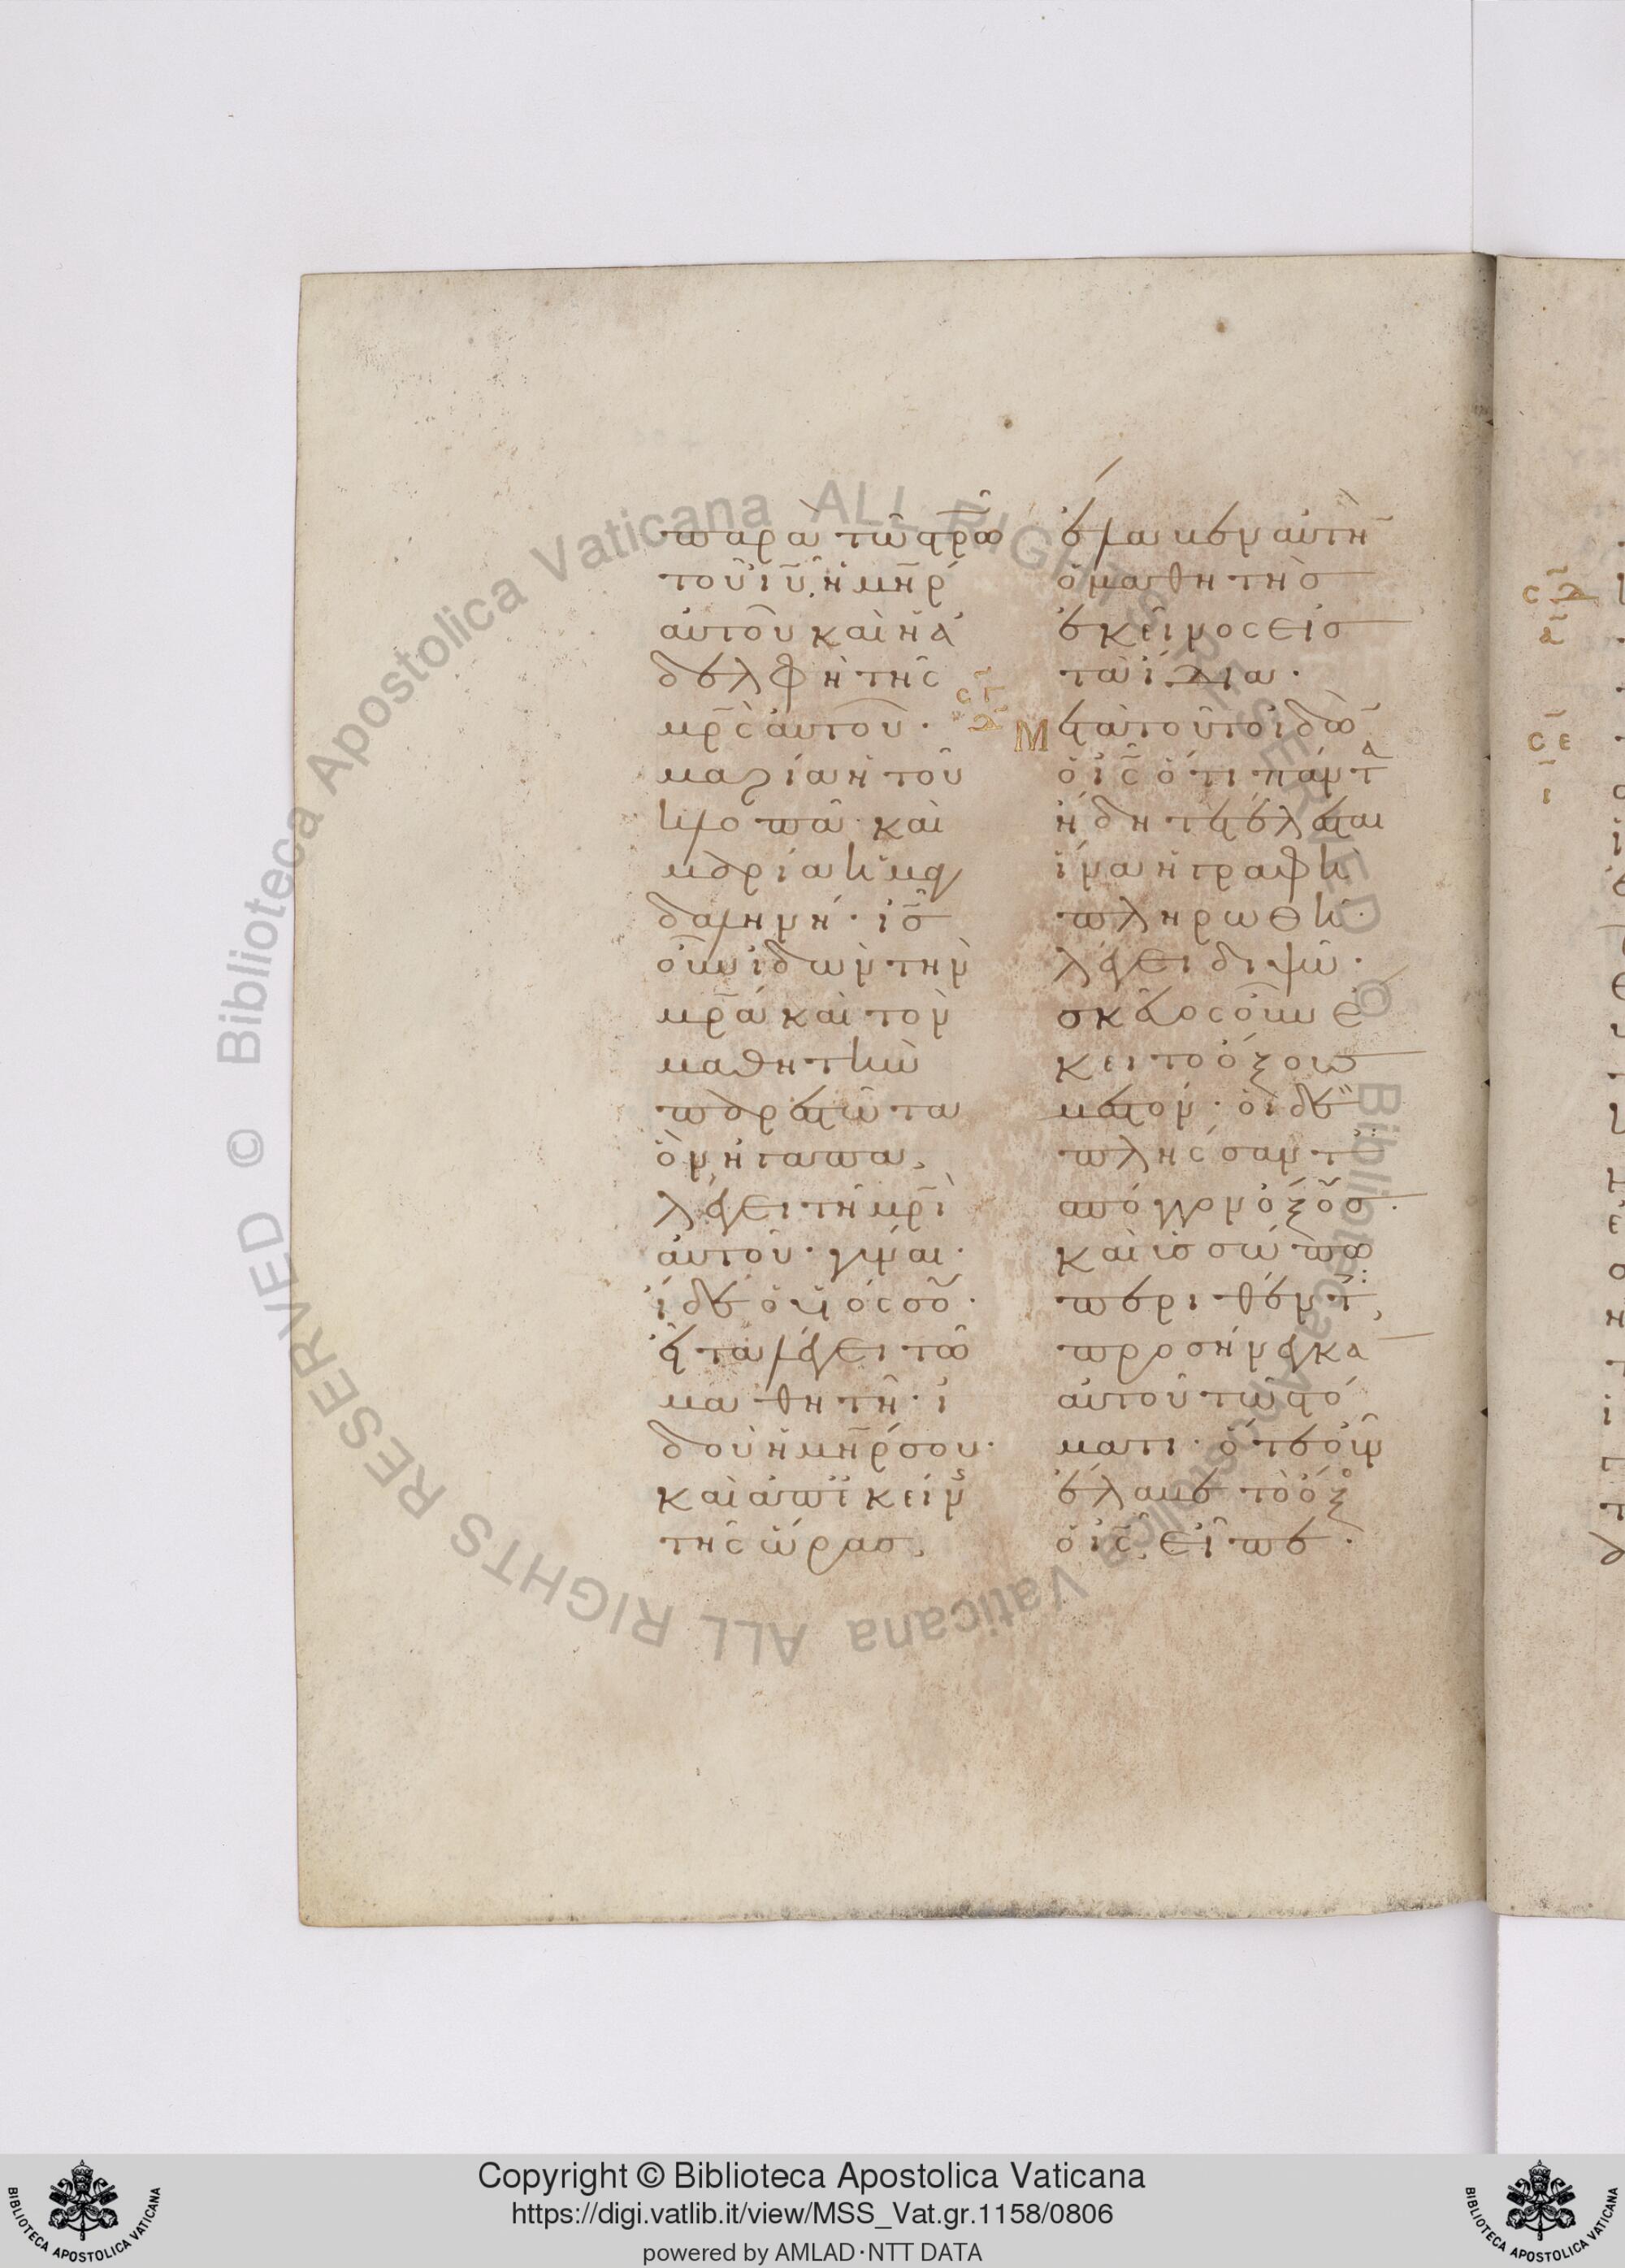 παρὰ τῶ στρῶ
τοῦ ιῦ, ἡ μηρ
αὐτοῦ καὶ ἡ ἀ
δελφὴ τῆς
μρς αὐτοῦ·
μαρία ἡ τοῦ
κλοπᾶ· καὶ
μαρία ἡ μαγ
δαληνή· ισ
οὖν ἰδὼν τὴν
μρα καὶ τὸν
μαθητὴν
παρεστῶτα
ὃν ἠγάπα,
λέγει τῆ μρι
αὐτοῦ· γύναι·
ἴδε ὁ υἱός σου·
εἶτα λέγει τῶ
μαθητῆ· ἰ
δοὺ ἡ μηρ σου·
καὶ ἀπ' ἐκείν
τῆς ὥρας,
ἔλαβεν αὐτὴ
ὁ μαθητὴς
ἐκεῖνος εἰς
τὰ ἴδια·
Μετὰ τοῦτο ἰδὼ
ὁ ις ὅτι πάντ
ἤδη τετέλεσται
ἵνα ἡ γραφὴ
πληρωθῆ·
λέγει διψῶ·
σκεῦος οὖν ἔ
κειτο ὄξους
μεστόν· οἱ δὲ
πλήσαντ
σπόγγον ὄξους·
καὶ ὑσσώπω
περιθέντ,
προσήνεγκα
αὐτοῦ τῶ στό
ματι· ὅτε οὖν
ἔλαβε τὸ ὄξ
ὁ ις, εἶπε·
Copyright © Biblioteca Apostolica Vaticana
https://digi.vatlib.it/view/MSS_Vat.gr.1158/0806
powered by AMLAD·NTT DATA
BIBLIOTECA APOSTOLICA VATICANA
BIBLIOTECA APOSTOLICA VATICANA
© Biblioteca Apostolica Vaticana ALL RIGHTS RESERVED © Biblioteca Apostolica Vaticana ALL RIGHTS RESERVED